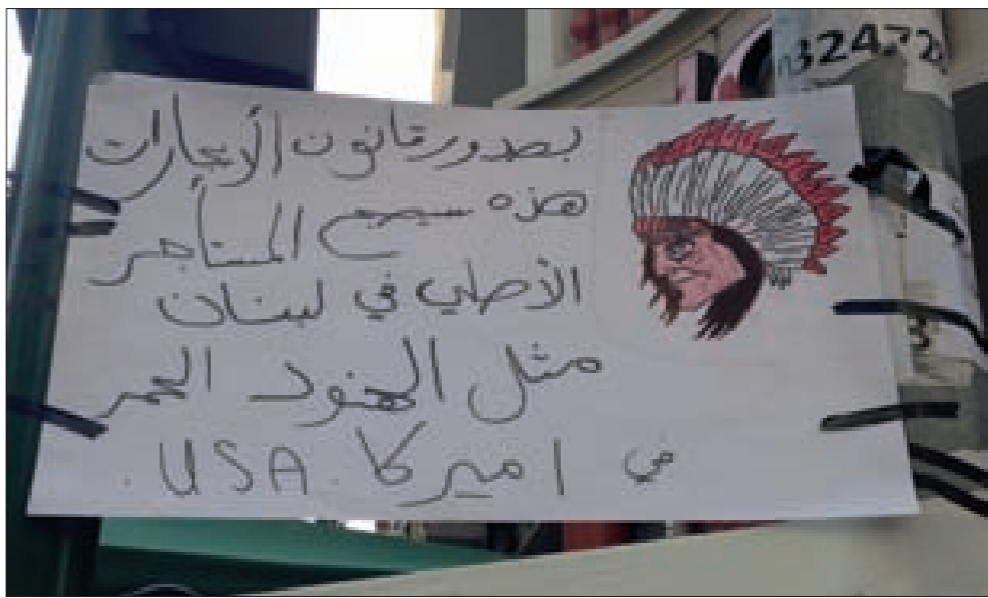 بصدور قانون الأيجارات
هذه سيصبح المستأجر
الأصلي في لبنان
مثل الهنود الحمر
في اميركا USA.